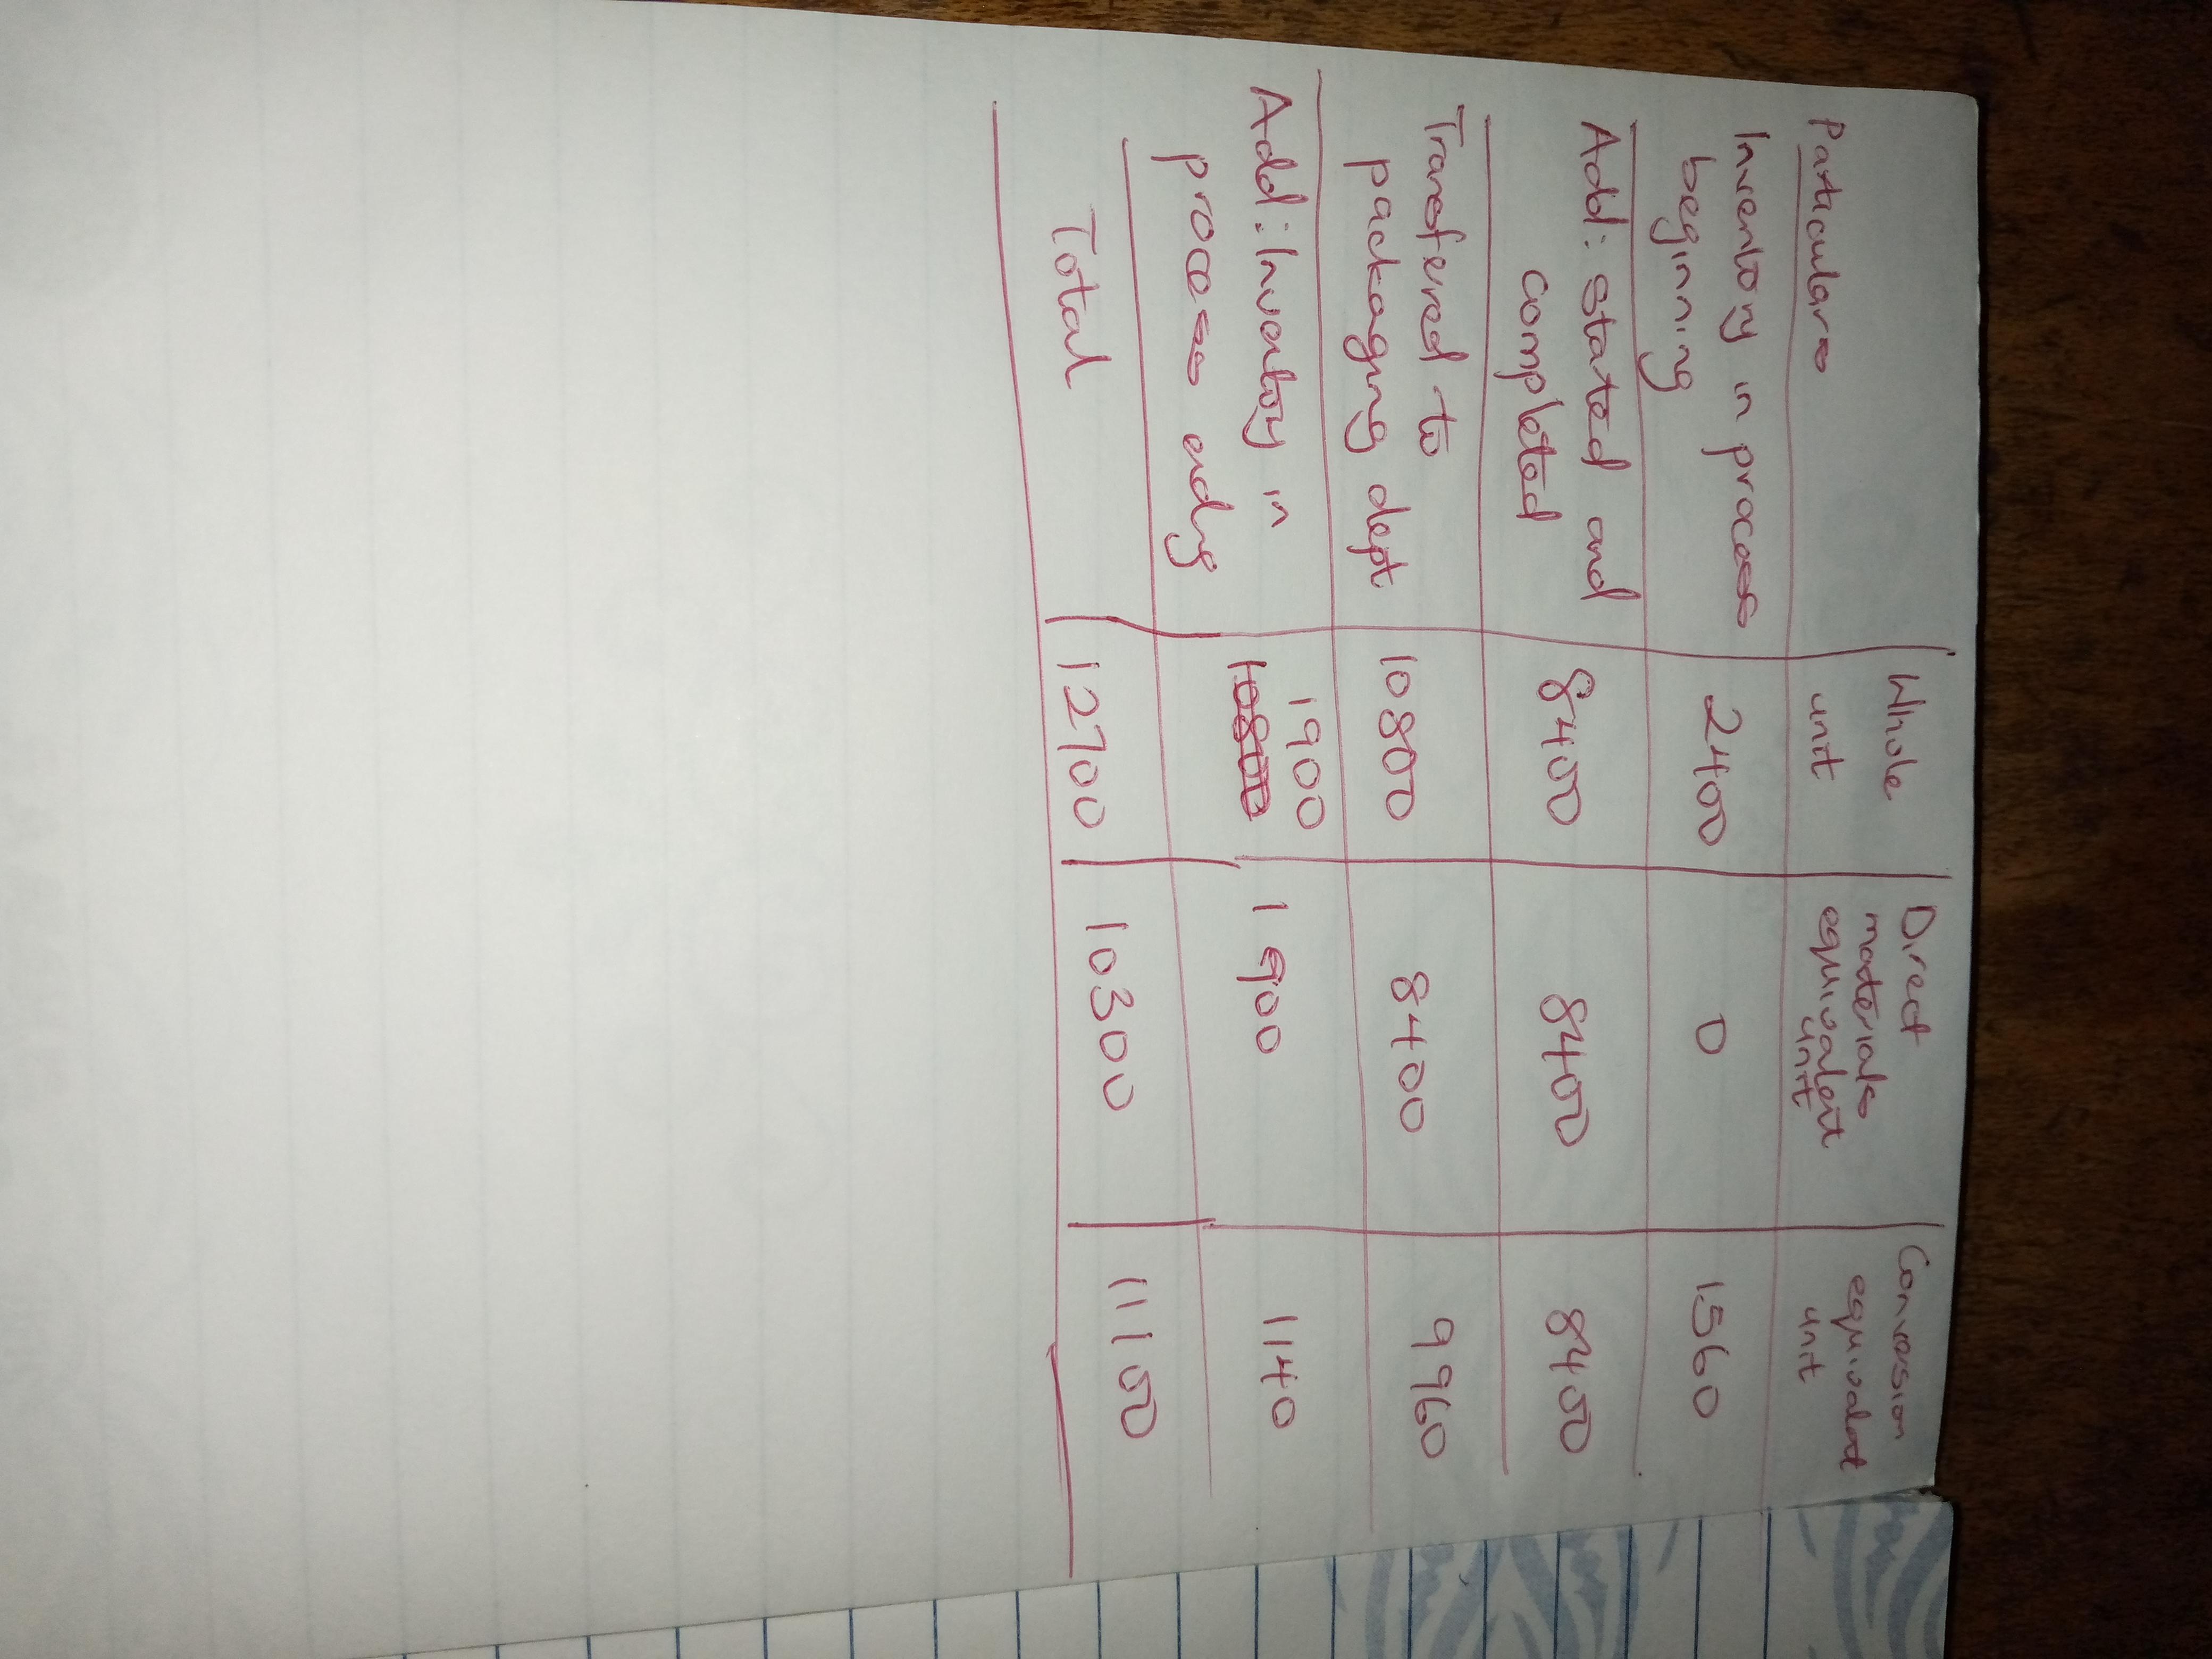 Particulars | Whole unit | Direct materials equivalent unit | Conversion equivalent unit
Inventory in process beginning | 2400 | 0 | 1560
Add: stated and completed | 8400 | 8400 | 8400
Transfered to packaging dept | 10800 | 8400 | 9960
Add: Inventory in process endng | 1900 | 1900 | 1140
10800
Total | 12700 | 10300 | 11100